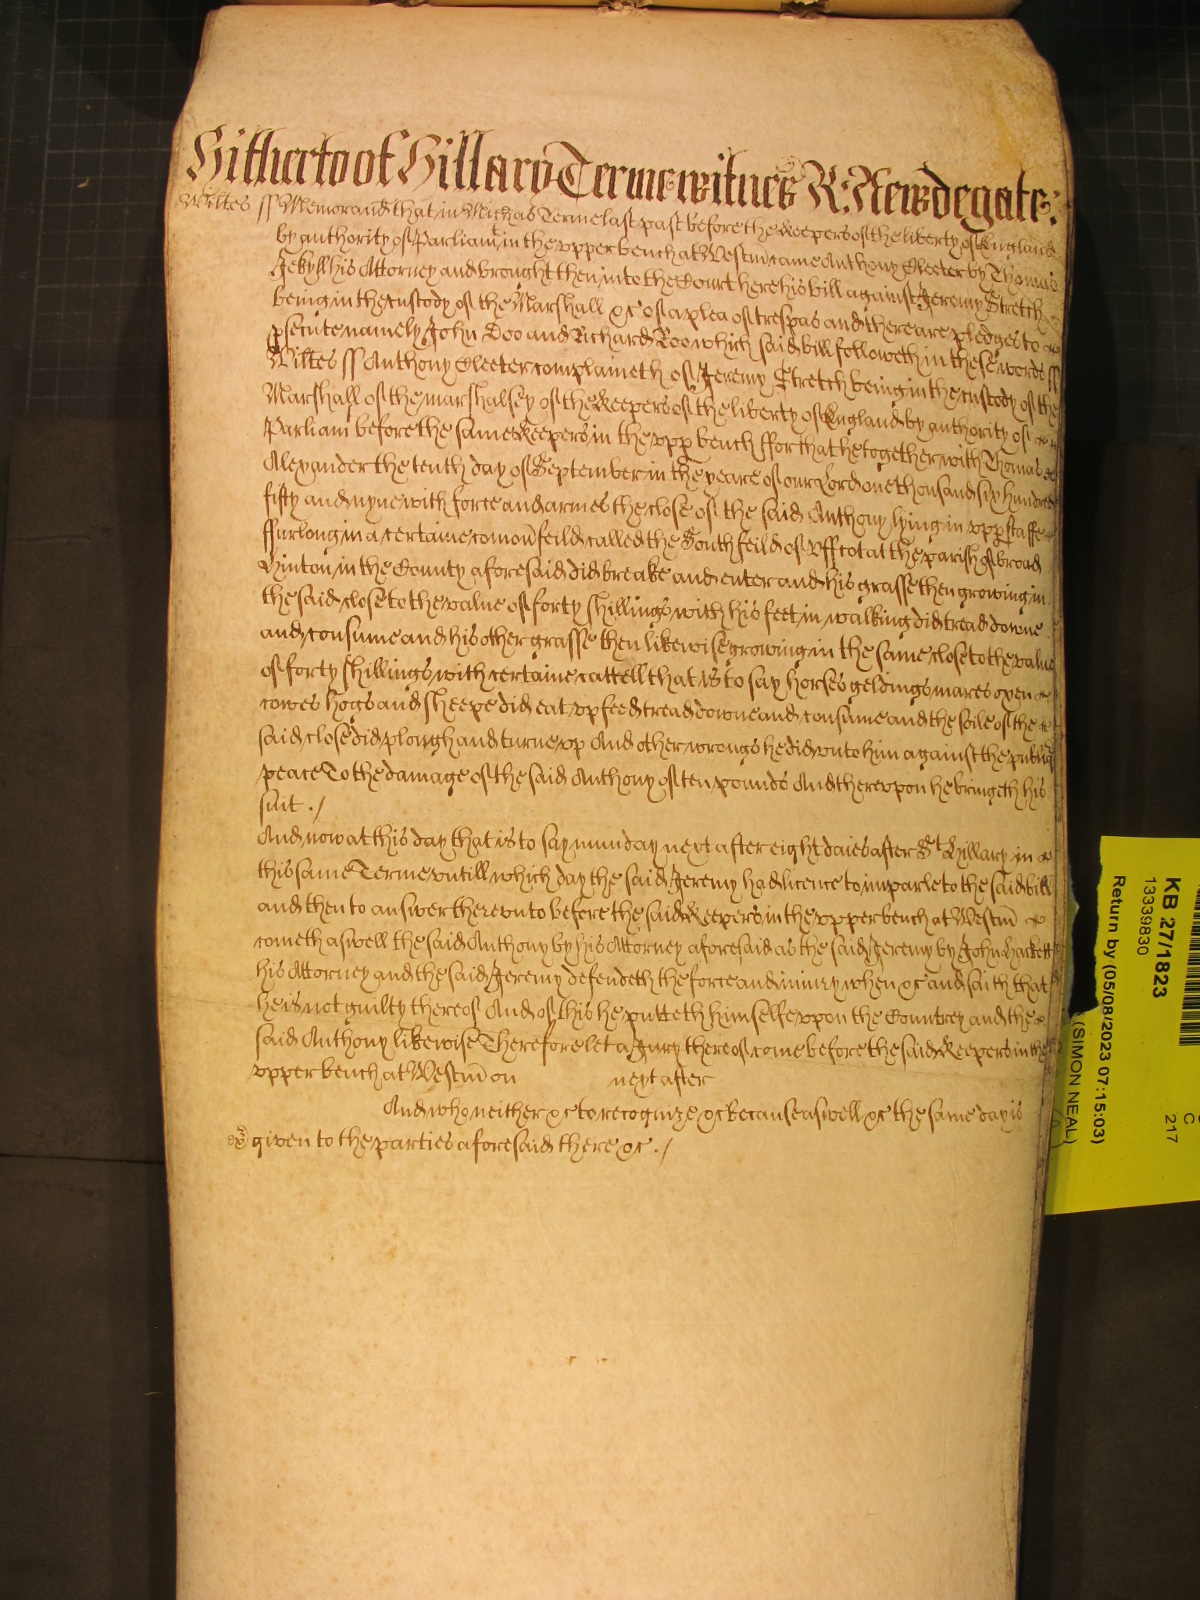 Hitherto of Hillary Terme witnes R: Newdegate:
Wiltes ss Memorand that in Michas Terme last past before the Keepers of the liberty of England
by authority of Parliamt in the upper bench at Westm came Anthony Cleeter by Thomas
Jekyll his Attorney and brought then into the Court here his bill against Jeremy Stretch
being in the custody of the Marshall &c of a plea of trespas and there are pledges to
psecute namely John Doo and Richard Roo which said bill followeth in these words ss
Wiltes ss Anthony Cleeter complaineth of Jeremy Stretch being in the custody of the
Marshall of the marshalsey of the Keepers of the liberty of England by authority of
Parliam before the same Keepers in the upp bench ffor that he together with Thomas
Alexander the tenth day of September in the yeare of our Lord one thousand six hundred
fifty and nyne with force and armes the close of the said Anthony lying in upp
ffurlong in a certaine comon feild called the South feild of Uffcot at the parish of broad
Hinton in the County aforesaid did breake and enter and his grasse then growing in
the said close to the value of forty shillings with his feet in walking did tread downe
and consume and his other grasse then likewise growing in the same close to the value
of forty shillings with certaine cattell that is to say horses geldings mares oxen
cowes hogs and sheepe did eat up feed tread downe and consume and the soile of the
said close did plough and turne up And other wrongs he did unto him against the publiq
peace To the damage of the said Anthony of ten pounds And thereupon he bringeth his
suit ./
And now at this day that is to say munday next after eight daies after St Hillary in
this same Terme untill which day the said Jeremy had licence to imparle to the said bill
and then to answer thereunto before the said Keepers in the upper bench at Westm
cometh aswell the said Anthony by his Attorney aforesaid as the said Jeremy by John Hackett
his Attorney and the said Jeremy defendeth the force and iniury when &c and saith that
he is not guilty thereof And of this he putteth himselfe upon the Countrey and the
said Anthony likewise Therefore let a Jury thereof come before the said Keepers in the
upper bench at Westm on next after
And who neither &c to recognize &c Because aswell &c the same day is
given to the parties aforesaid there &c ./
KB 27/1823
13339830
Return by (05/08/2023 07:15:03)
(SIMON NEAL)
C
217